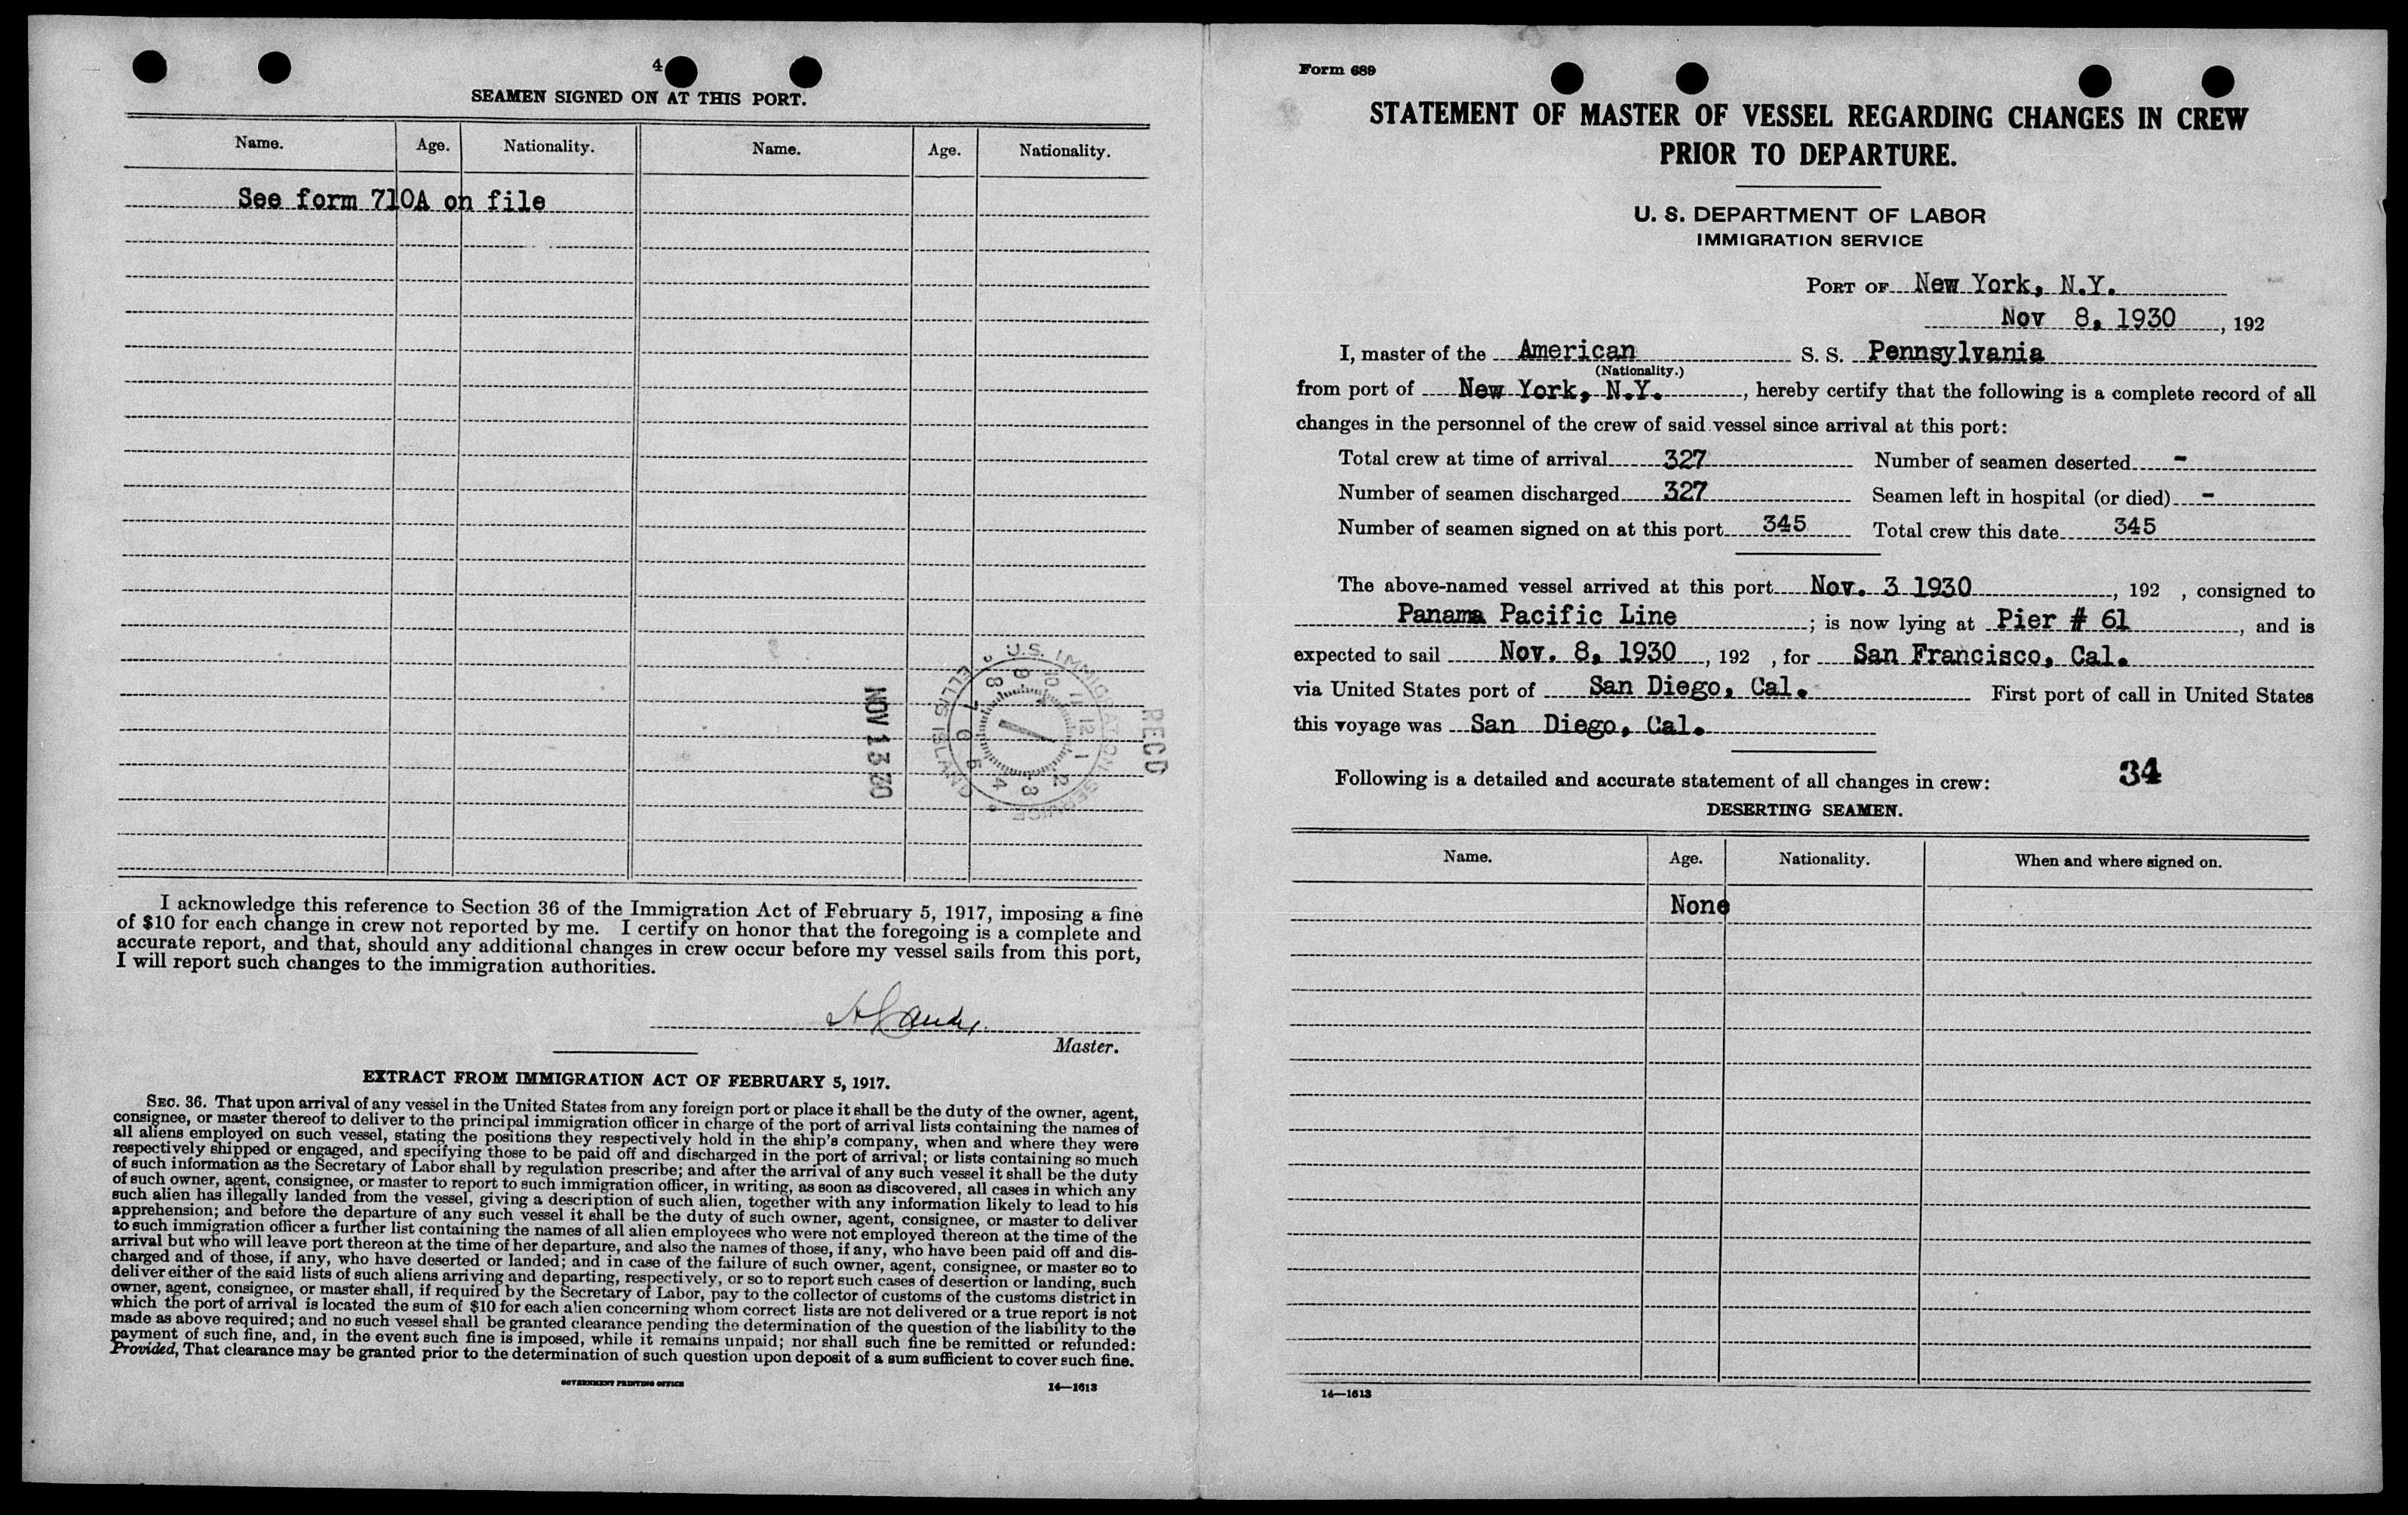 4
SEAMEN SIGNED ON AT THIS PORT.
Name. Age. Nationality. Name. Age. Nationality.
See form 710A on file
RECD
U.S. IMMIGRATION SERVICE
ELLIS ISLAND
1 2 3 4 5 6 7 8 9 10 11 12
NOV 13 30
I acknowledge this reference to Section 36 of the Immigration Act of February 5, 1917, imposing a fine
of $10 for each change in crew not reported by me. I certify on honor that the foregoing is a complete and
accurate report, and that, should any additional changes in crew occur before my vessel sails from this port,
I will report such changes to the immigration authorities.
Master.
EXTRACT FROM IMMIGRATION ACT OF FEBRUARY 5, 1917.
SEC. 36. That upon arrival of any vessel in the United States from any foreign port or place it shall be the duty of the owner, agent,
consignee, or master thereof to deliver to the principal immigration officer in charge of the port of arrival lists containing the names of
all aliens employed on such vessel, stating the positions they respectively hold in the ship's company, when and where they were
respectively shipped or engaged, and specifying those to be paid off and discharged in the port of arrival; or lists containing so much
of such information as the Secretary of Labor shall by regulation prescribe; and after the arrival of any such vessel it shall be the duty
of such owner, agent, consignee, or master to report to such immigration officer, in writing, as soon as discovered, all cases in which any
such alien has illegally landed from the vessel, giving a description of such alien, together with any information likely to lead to his
apprehension; and before the departure of any such vessel it shall be the duty of such owner, agent, consignee, or master to deliver
to such immigration officer a further list containing the names of all alien employees who were not employed thereon at the time of the
arrival but who will leave port thereon at the time of her departure, and also the names of those, if any, who have been paid off and dis-
charged and of those, if any, who have deserted or landed; and in case of the failure of such owner, agent, consignee, or master so to
deliver either of the said lists of such aliens arriving and departing, respectively, or so to report such cases of desertion or landing, such
owner, agent, consignee, or master shall, if required by the Secretary of Labor, pay to the collector of customs of the customs district in
which the port of arrival is located the sum of $10 for each alien concerning whom correct lists are not delivered or a true report is not
made as above required; and no such vessel shall be granted clearance pending the determination of the question of the liability to the
payment of such fine, and, in the event such fine is imposed, while it remains unpaid; nor shall such fine be remitted or refunded:
Provided, That clearance may be granted prior to the determination of such question upon deposit of a sum sufficient to cover such fine.
GOVERNMENT PRINTING OFFICE 14—1613
Form 689
STATEMENT OF MASTER OF VESSEL REGARDING CHANGES IN CREW
PRIOR TO DEPARTURE.
U. S. DEPARTMENT OF LABOR
IMMIGRATION SERVICE
PORT OF New York, N.Y.
Nov 8, 1930, 192
I, master of the American S. S. Pennsylvania
(Nationality.)
from port of New York, N.Y., hereby certify that the following is a complete record of all
changes in the personnel of the crew of said vessel since arrival at this port:
Total crew at time of arrival 327 Number of seamen deserted -
Number of seamen discharged 327 Seamen left in hospital (or died) -
Number of seamen signed on at this port 345 Total crew this date 345
The above-named vessel arrived at this port Nov. 3 1930, 192 , consigned to
Panama Pacific Line; is now lying at Pier # 61, and is
expected to sail Nov. 8, 1930, 192 , for San Francisco, Cal.
via United States port of San Diego, Cal. First port of call in United States
this voyage was San Diego, Cal.
Following is a detailed and accurate statement of all changes in crew: 34
DESERTING SEAMEN.
Name. Age. Nationality. When and where signed on.
None
14—1613